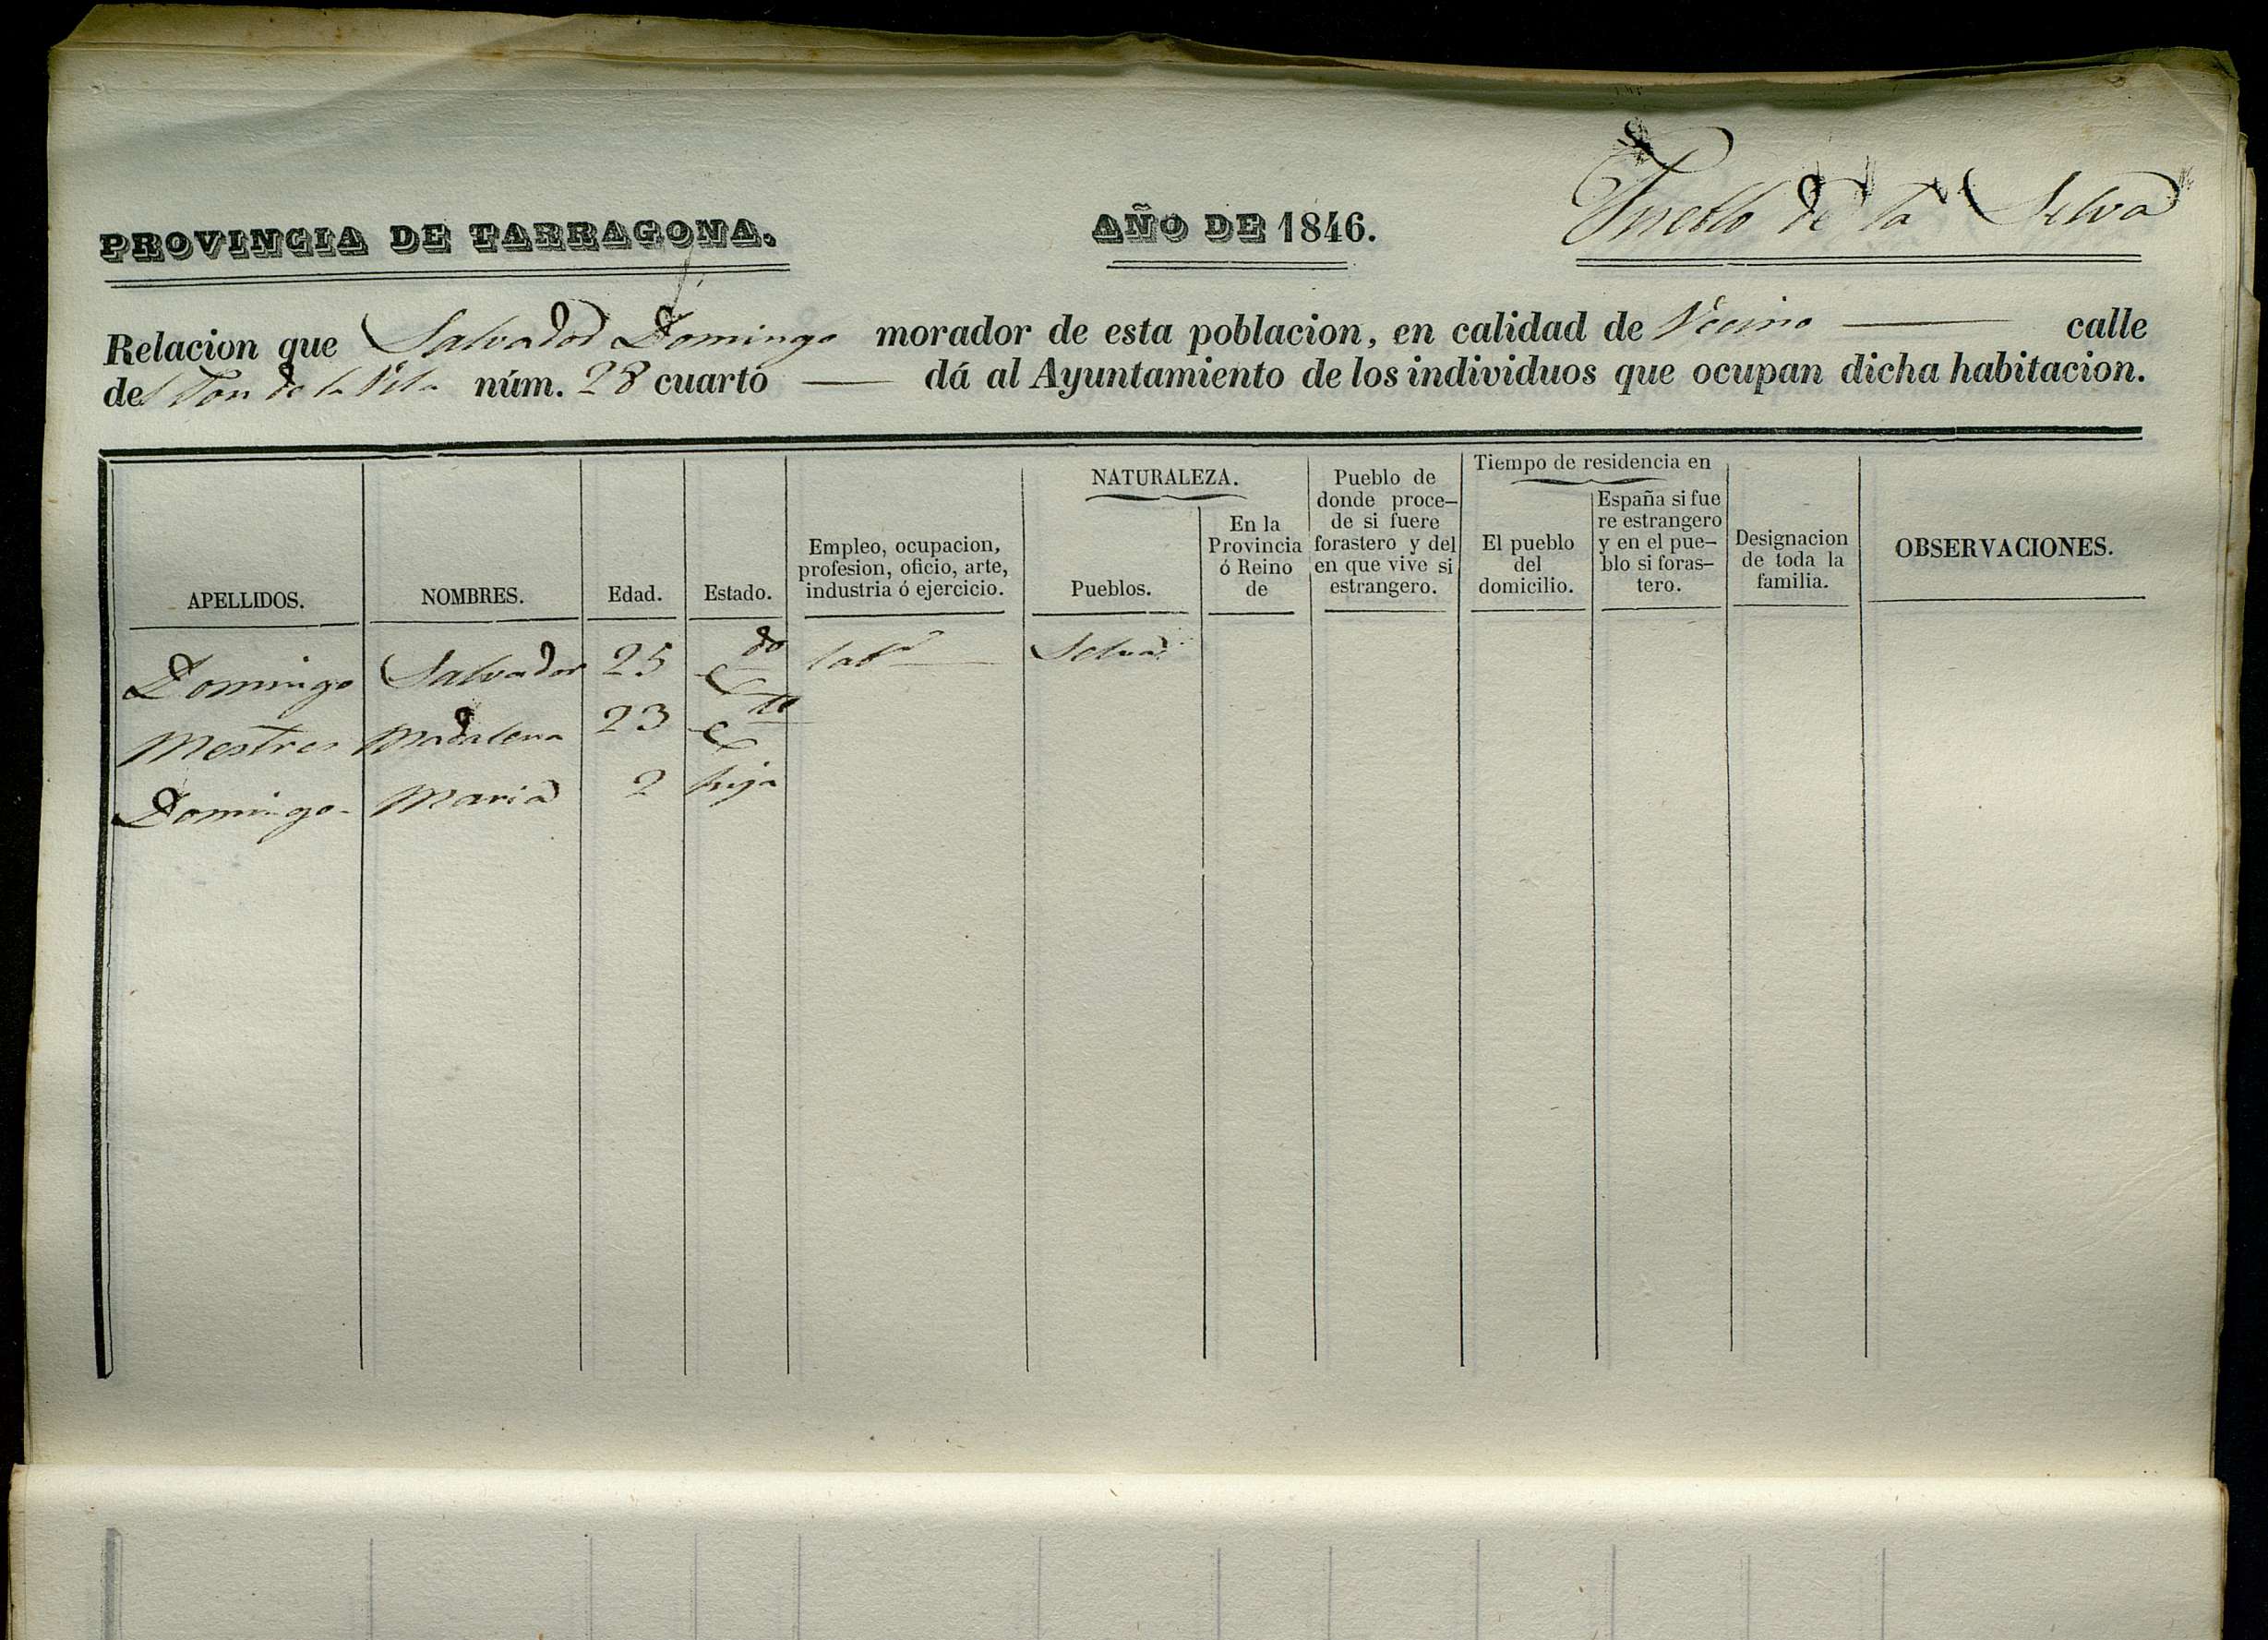 PROVINCIA DE TARRAGONA. AÑO DE 1846. Pueblo de la Selva
Relacion que Salvador Domingo morador de esta poblacion, en calidad de Vecino calle
del de la Vila núm. 28 cuarto dá al Ayuntamiento de los individuos que ocupan dicha habitacion.
APELLIDOS. NOMBRES. Edad. Estado. Empleo, ocupacion, profesion, oficio, arte, industria ó ejercicio. NATURALEZA. Pueblos. En la Provincia ó Reino de Pueblo de donde proce- de si fuere forastero y del en que vive si estrangero. Tiempo de residencia en El pueblo del domicilio. España si fue re estrangero y en el pue- blo si foras- tero. Designacion de toda la familia. OBSERVACIONES.
Domingo Salvador 25 Cdo labr Selva
Mestres Madalena 23 Cda
Domingo Maria 2 hija